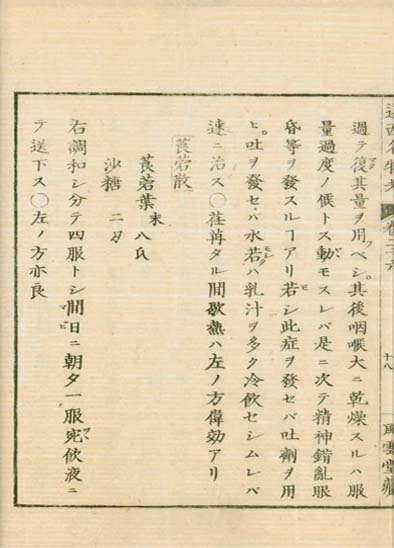 過テ復其量ヲ用フベシ。其後咽喉大ニ乾燥スルハ服
量過度ノ候トス動モスレバ是ニ次テ精神錯亂眼
昏等ヲ發スルヿアリ若シ此症ヲ發セバ吐劑ヲ用
ヒ。吐ヲ發セバ水若クハ乳汁ヲ多ク冷飲セシムレバ
速ニ治ス〇荏苒タル間歇熱ハ左ノ方偉効アリ
莨菪散
莨菪葉末 八氏
沙糖 二刃
右調和シ分テ四服トシ間日ニ朝夕一服宛飲液ニ
テ送下ス〇左ノ方亦良
十八
風雲堂藏